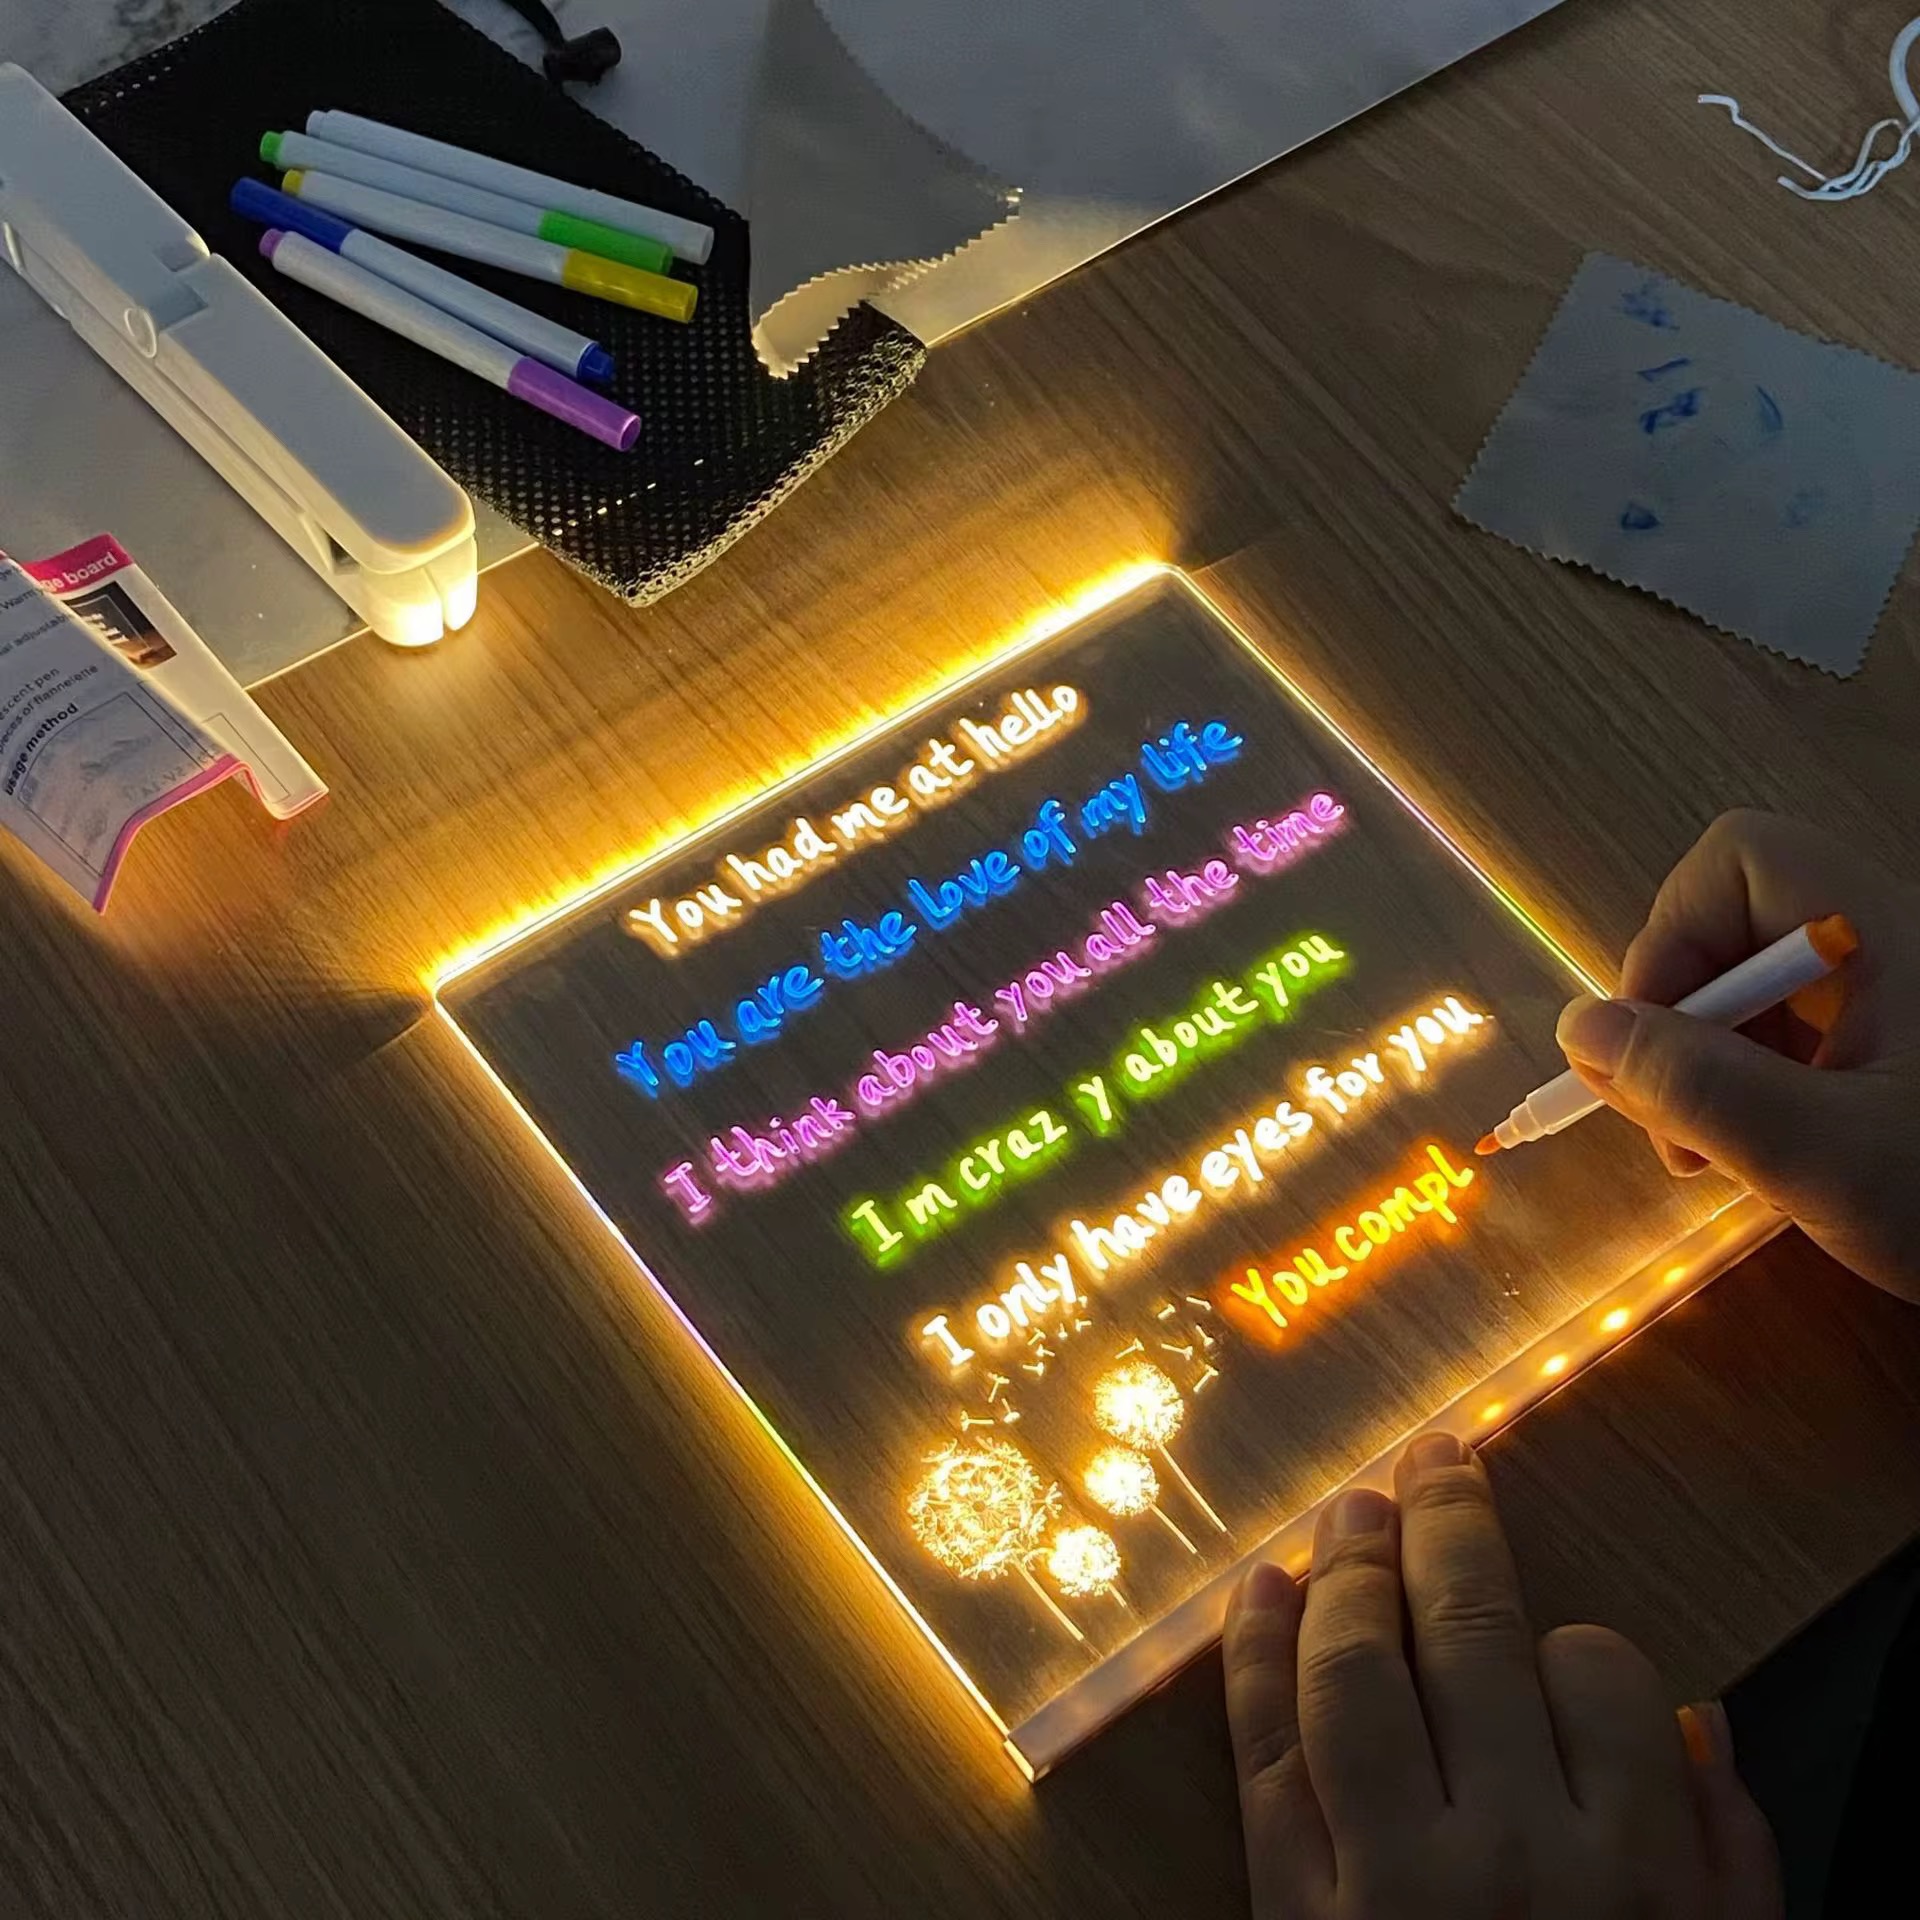 You had me at hello
You are the love of my life
I think about you all the time
I m craz y about you
I only have eyes for you
You compl
ge board
Warm
al adjustab
escent pen
pieces of flannelette
usage method